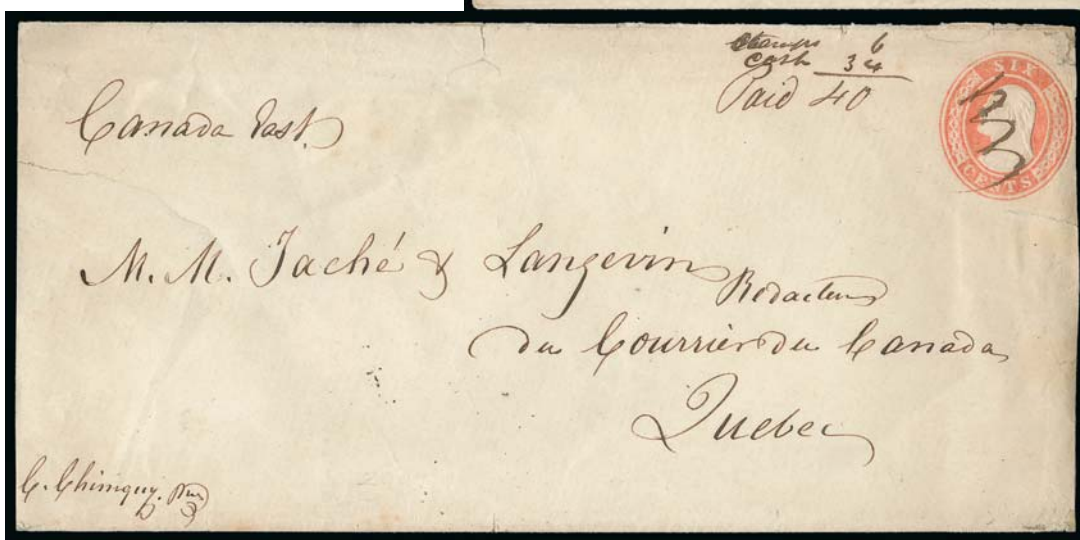 Stamps 6
Cash 34
Paid 40
SIX
CENTS
Canada East.
M. M. Taché & Langevin
Redacteurs
du Courrier du Canada
Quebec
C. Chiniquy.